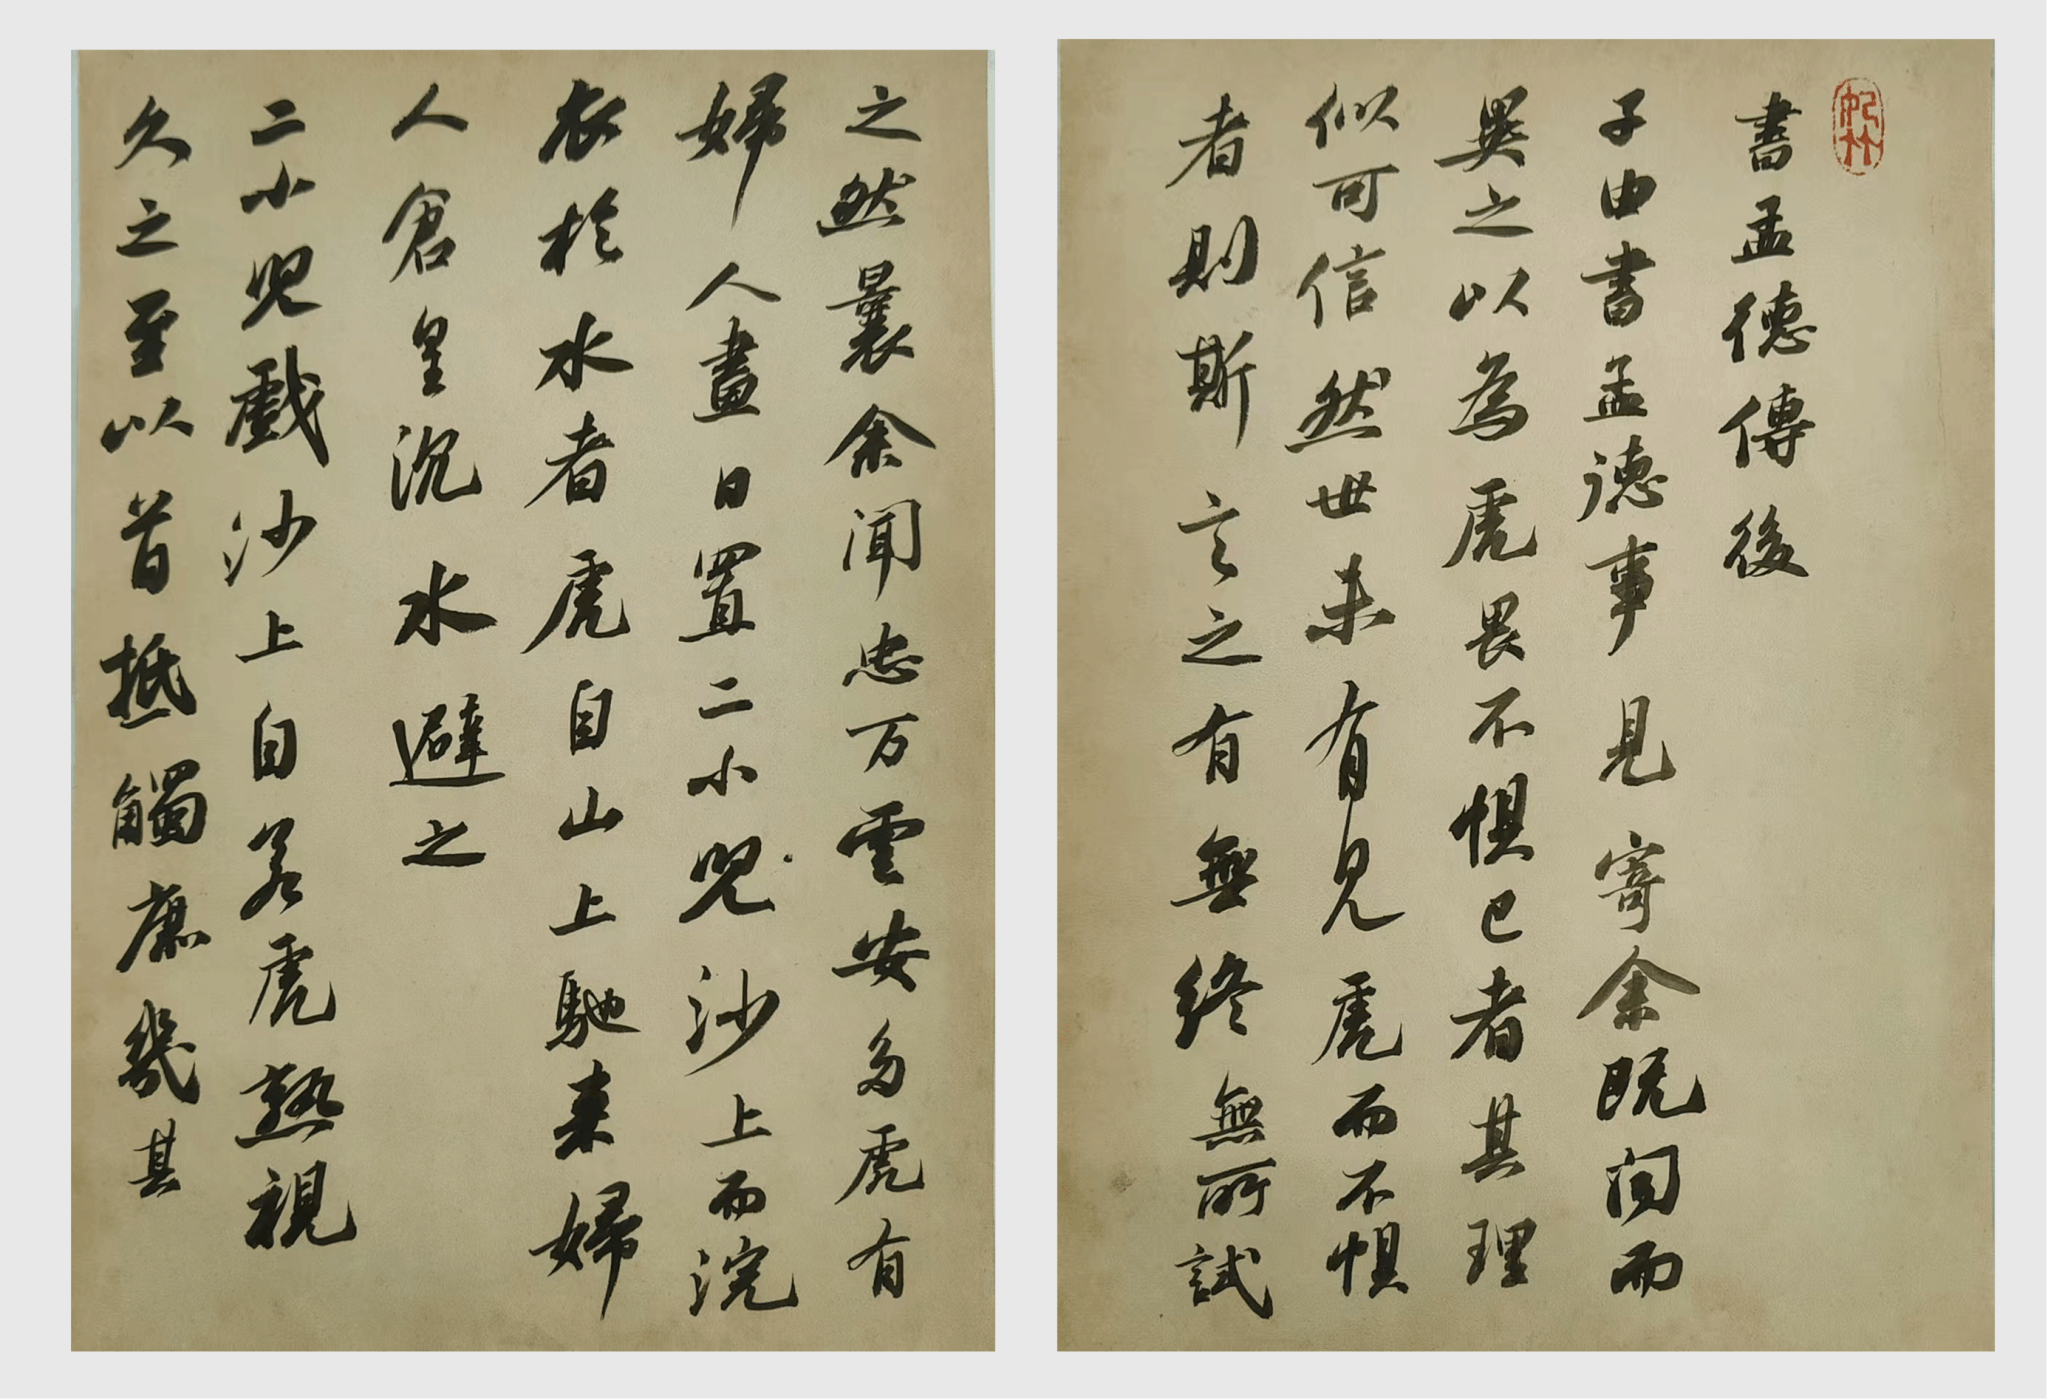 書孟德傳後
子由書孟德事見寄余既聞而
異之以為虎畏不懼己者其理
似可信然世未有見虎而不懼
者則斯言之有無終無所試
之然曩余聞忠万雲安多虎有
婦人晝日置二小兒沙上而浣
衣於水者虎自山上馳来婦
人倉皇沉水避之
二小兒戲沙上自若虎熟視
久之至以首抵觸庶幾其